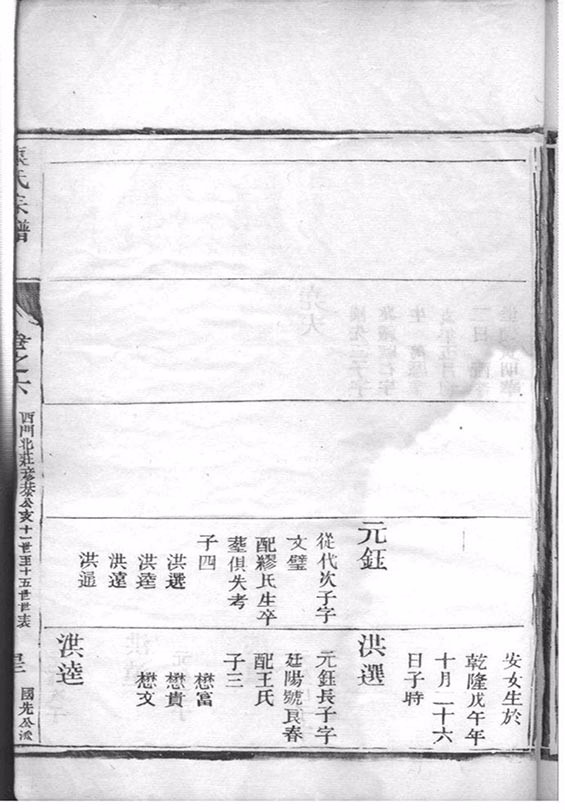 安女生於
乾隆戊午年
十月二十六
日子時
元鈺
從代次子字
文璧
配繆氏生卒
塟俱失考
子四
洪選
洪逵
洪遠
洪通
洪選
元鈺長子字
廷陽號良春
配王氏
子三
懋富
懋貴
懋文
洪逵
袁氏宗譜
卷之六
十一世至十五世世表
國先公派